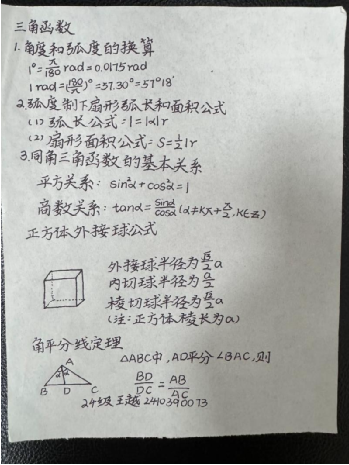 三角函数
1.角度和弧度的换算
1°=π/180 rad=0.0175rad
1rad=(180/π)°=57.30°=57°18′
2.弧度制下扇形弧长和面积公式
(1)弧长公式=l=|α|r
(2)扇形面积公式=S=½lr
3.同角三角函数的基本关系
平方关系: sin²α+cos²α=1
商数关系: tanα=sinα/cosα (α≠kπ+π/2,k∈Z)
正方体外接球公式
外接球半径为√3/2 a
内切球半径为a/2
棱切球半径为√2/2 a
(注:正方体棱长为a)
角平分线定理
△ABC中,AD平分∠BAC,则
A
B D C
BD/DC=AB/AC
24级王越2410390073